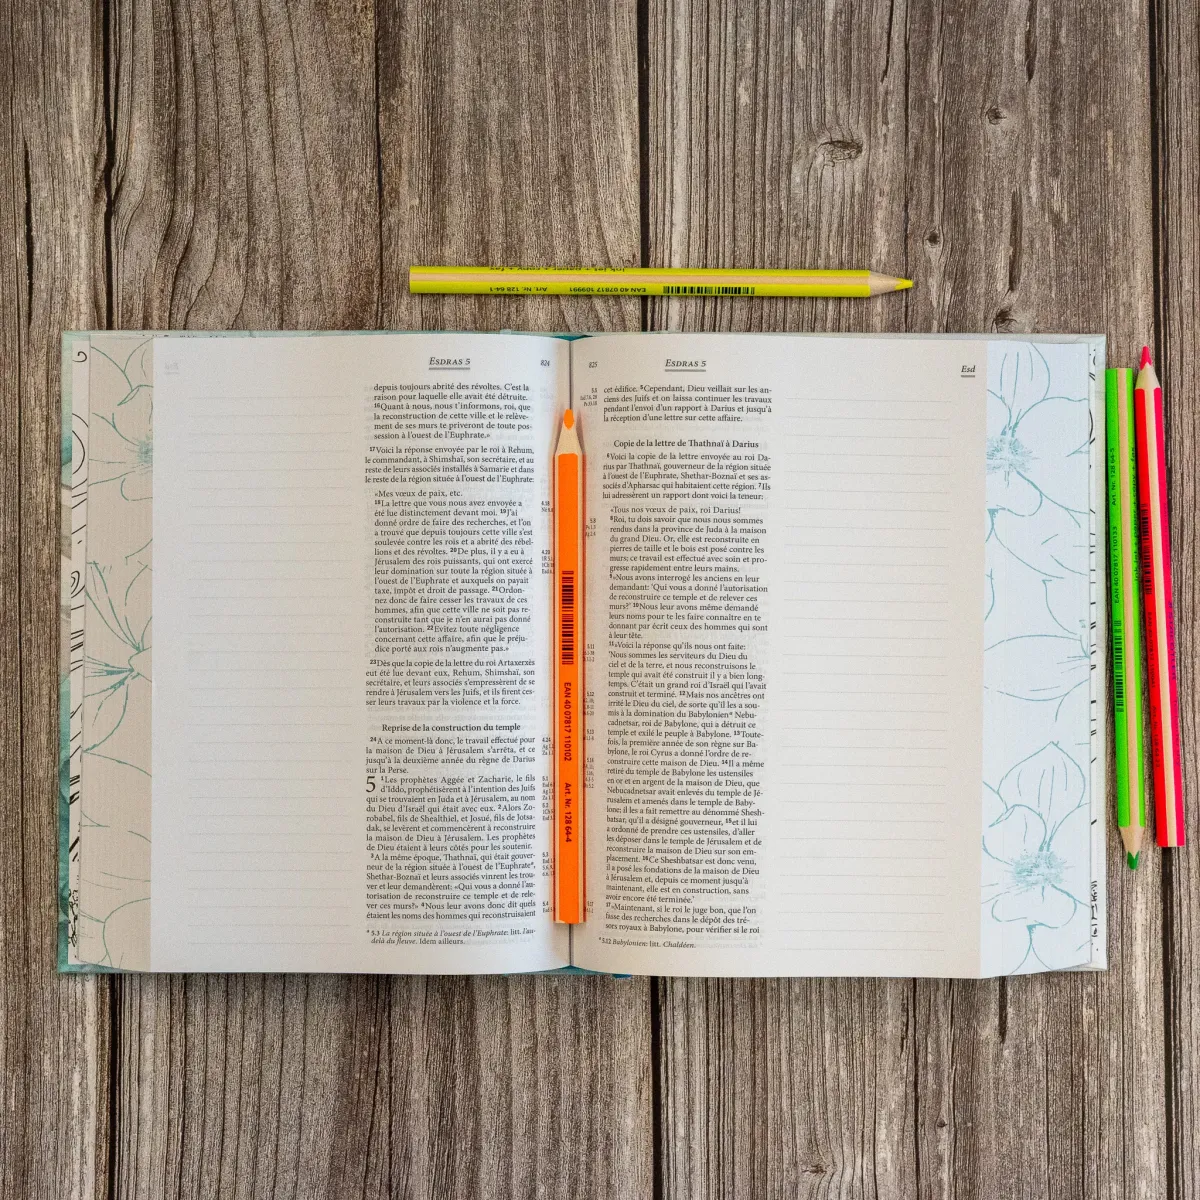 ink jet + paper + copy + fax
Art. Nr. 128 64-1 EAN 40 07817 109991
ESDRAS 5 824
depuis toujours abrité des révoltes. C'est la
raison pour laquelle elle avait été détruite.
16Quant à nous, nous t'informons, roi, que
la reconstruction de cette ville et le relève-
ment de ses murs te priveront de toute pos-
session à l'ouest de l'Euphrate.»
17Voici la réponse envoyée par le roi à Rehum,
le commandant, à Shimshaï, son secrétaire, et au
reste de leurs associés installés à Samarie et dans
le reste de la région située à l'ouest de l'Euphrate:
«Mes vœux de paix, etc.
18La lettre que vous nous avez envoyée a
été lue distinctement devant moi. 19J'ai
donné ordre de faire des recherches, et l'on
a trouvé que depuis toujours cette ville s'est
soulevée contre les rois et a abrité des rébel-
lions et des révoltes. 20De plus, il y a eu à
Jérusalem des rois puissants, qui ont exercé
leur domination sur toute la région située à
l'ouest de l'Euphrate et auxquels on payait
taxe, impôt et droit de passage. 21Ordon-
nez donc de faire cesser les travaux de ces
hommes, afin que cette ville ne soit pas re-
construite tant que je n'en aurai pas donné
l'autorisation. 22Evitez toute négligence
concernant cette affaire, afin que le préju-
dice porté aux rois n'augmente pas.»
23Dès que la copie de la lettre du roi Artaxerxès
eut été lue devant eux, Rehum, Shimshaï, son
secrétaire, et leurs associés s'empressèrent de se
rendre à Jérusalem vers les Juifs, et ils firent ces-
ser leurs travaux par la violence et la force.
Reprise de la construction du temple
24A ce moment-là donc, le travail effectué pour
la maison de Dieu à Jérusalem s'arrêta, et ce
jusqu'à la deuxième année du règne de Darius
sur la Perse.
5 1Les prophètes Aggée et Zacharie, le fils
d'Iddo, prophétisèrent à l'intention des Juifs
qui se trouvaient en Juda et à Jérusalem, au nom
du Dieu d'Israël qui était avec eux. 2Alors Zo-
robabel, fils de Shealthiel, et Josué, fils de Jotsa-
dak, se levèrent et commencèrent à reconstruire
la maison de Dieu à Jérusalem. Les prophètes
de Dieu étaient à leurs côtés pour les soutenir.
3A la même époque, Thathnaï, qui était gouver-
neur de la région située à l'ouest de l'Euphrate*,
Shethar-Boznaï et leurs associés vinrent les trou-
ver et leur demandèrent: «Qui vous a donné l'au-
torisation de reconstruire ce temple et de rele-
ver ces murs?» 4Nous leur avons donc dit quels
étaient les noms des hommes qui reconstruisaient
* 5.3 La région située à l'ouest de l'Euphrate: litt. l'au-
delà du fleuve. Idem ailleurs.
EAN 40 07817 110102 Art. Nr. 128 64-4
825 ESDRAS 5 Esd
cet édifice. 5Cependant, Dieu veillait sur les an-
ciens des Juifs et on laissa continuer les travaux
pendant l'envoi d'un rapport à Darius et jusqu'à
la réception d'une lettre sur cette affaire.
Copie de la lettre de Thathnaï à Darius
6Voici la copie de la lettre envoyée au roi Da-
rius par Thathnaï, gouverneur de la région située
à l'ouest de l'Euphrate, Shethar-Boznaï et ses as-
sociés d'Apharsac qui habitaient cette région. 7Ils
lui adressèrent un rapport dont voici la teneur:
«Tous nos vœux de paix, roi Darius!
8Roi, tu dois savoir que nous nous sommes
rendus dans la province de Juda à la maison
du grand Dieu. Or, elle est reconstruite en
pierres de taille et le bois est posé contre les
murs; ce travail est effectué avec soin et pro-
gresse rapidement entre leurs mains.
9»Nous avons interrogé les anciens en leur
demandant: 'Qui vous a donné l'autorisation
de reconstruire ce temple et de relever ces
murs?' 10Nous leur avons même demandé
leurs noms pour te les faire connaître en te
donnant par écrit ceux des hommes qui sont
à leur tête.
11»Voici la réponse qu'ils nous ont faite:
'Nous sommes les serviteurs du Dieu du
ciel et de la terre, et nous reconstruisons le
temple qui avait été construit il y a bien long-
temps. C'était un grand roi d'Israël qui l'avait
construit et terminé. 12Mais nos ancêtres ont
irrité le Dieu du ciel, de sorte qu'il les a sou-
mis à la domination du Babylonien* Nebu-
cadnetsar, roi de Babylone, qui a détruit ce
temple et exilé le peuple à Babylone. 13Toute-
fois, la première année de son règne sur Ba-
bylone, le roi Cyrus a donné l'ordre de re-
construire cette maison de Dieu. 14Il a même
retiré du temple de Babylone les ustensiles
en or et en argent de la maison de Dieu, que
Nebucadnetsar avait enlevés du temple de Jé-
rusalem et amenés dans le temple de Baby-
lone; il les a fait remettre au dénommé Shesh-
batsar, qu'il a désigné gouverneur, 15et il lui
a ordonné de prendre ces ustensiles, d'aller
les déposer dans le temple de Jérusalem et de
reconstruire la maison de Dieu sur son em-
placement. 16Ce Sheshbatsar est donc venu,
il a posé les fondations de la maison de Dieu
à Jérusalem et, depuis ce moment jusqu'à
maintenant, elle est en construction, sans
avoir encore été terminée.'
17»Maintenant, si le roi le juge bon, que l'on
fasse des recherches dans le dépôt des tré-
sors royaux à Babylone, pour vérifier si le roi
* 5.12 Babylonien: litt. Chaldéen.
EAN 40 07817 110133 Art. Nr. 128 64-5